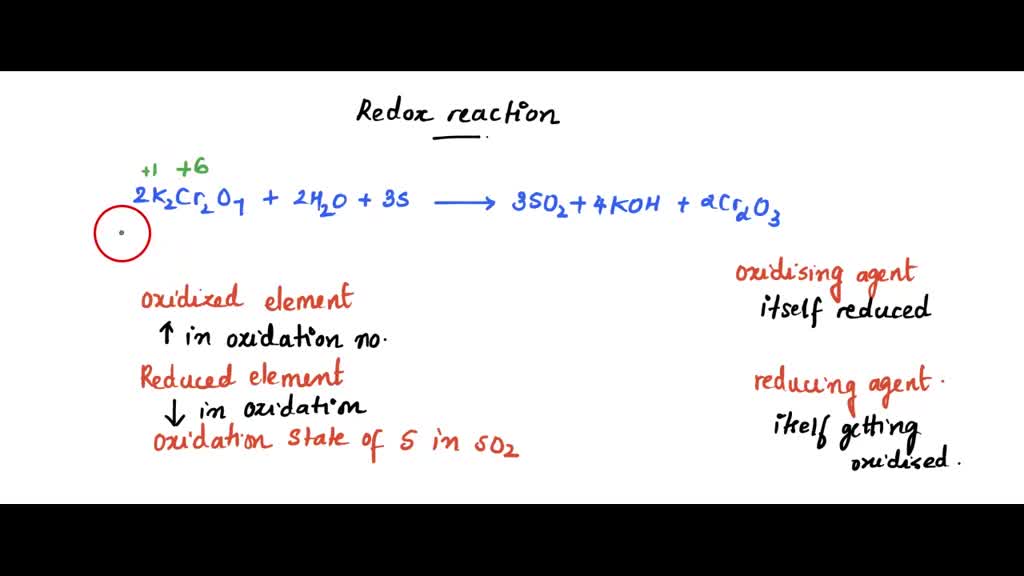 Redox reaction
+1 +6
2K₂Cr₂O₇ + 2H₂O + 3S ⟶ 3SO₂ + 4KOH + 2Cr₂O₃
oxidized element
↑ in oxidation no.
Reduced element
↓ in oxidation
oxidation state of S in SO₂
oxidising agent
itself reduced
reducing agent.
itself getting
oxidised.